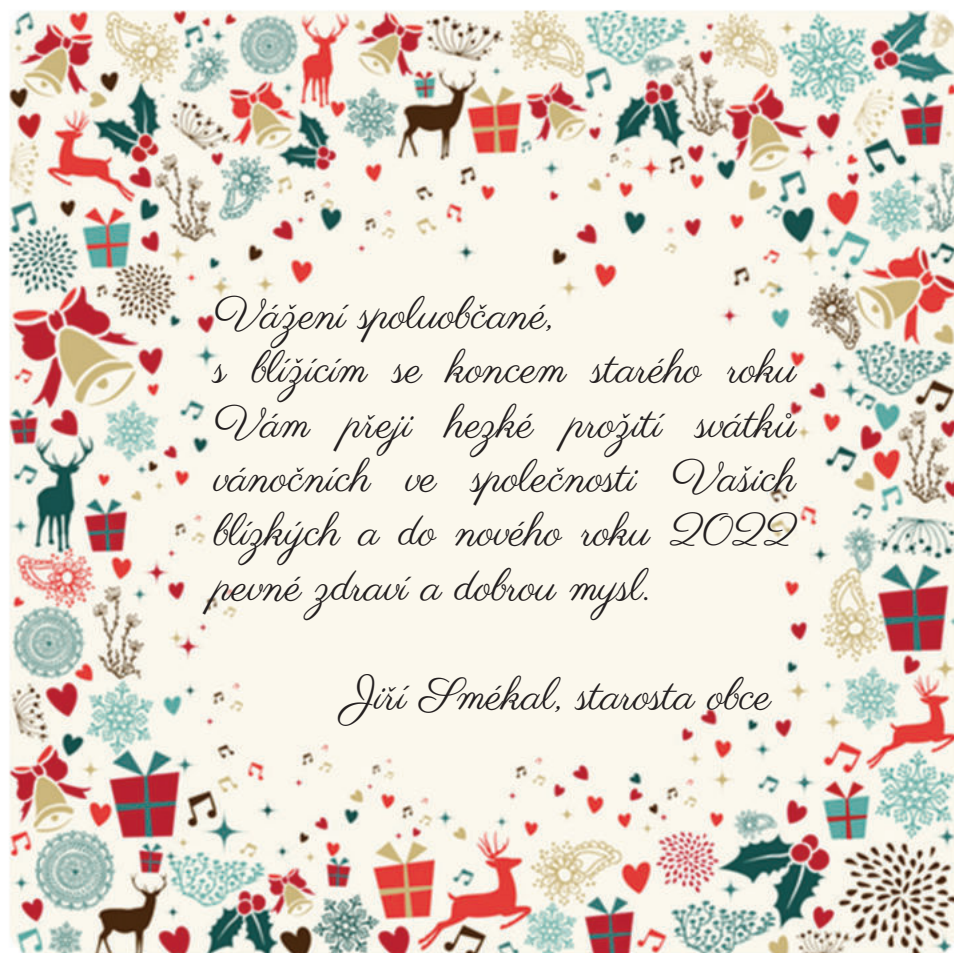 Vážení spoluobčané,
s blížícím se koncem starého roku
Vám přeji hezké prožití svátků
vánočních ve společnosti Vašich
blízkých a do nového roku 2022
pevné zdraví a dobrou mysl.
Jiří Smékal, starosta obce